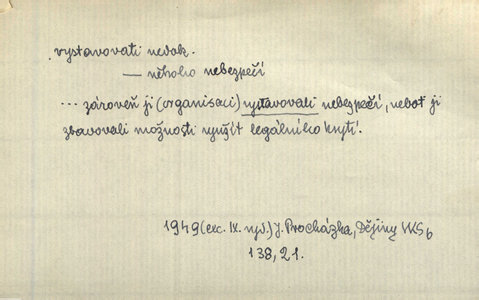 vystavovati nedok.
— někoho nebezpečí
... zároveň ji (organisaci) vystavovali nebezpečí, neboť ji
zbavovali možnosti využít legálního krytí.
1949 (exc. IX. vyd.) J. Procházka, Dějiny VKSb
138, 21.